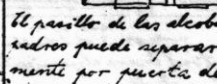 El pasillo de las alcob
padres puede separar
mente por puerta d